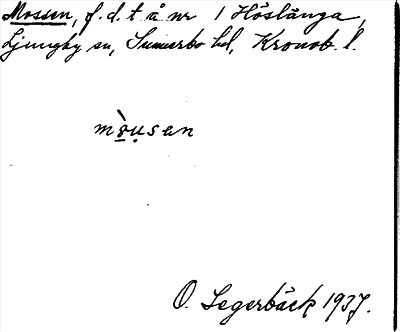 Mossen, f. d. t. å nr 1 Höslänga,
Ljungby sn, Sunnerbo hd, Kronob. l.
mò̱u̱sen
O. Segerbäck 1937.